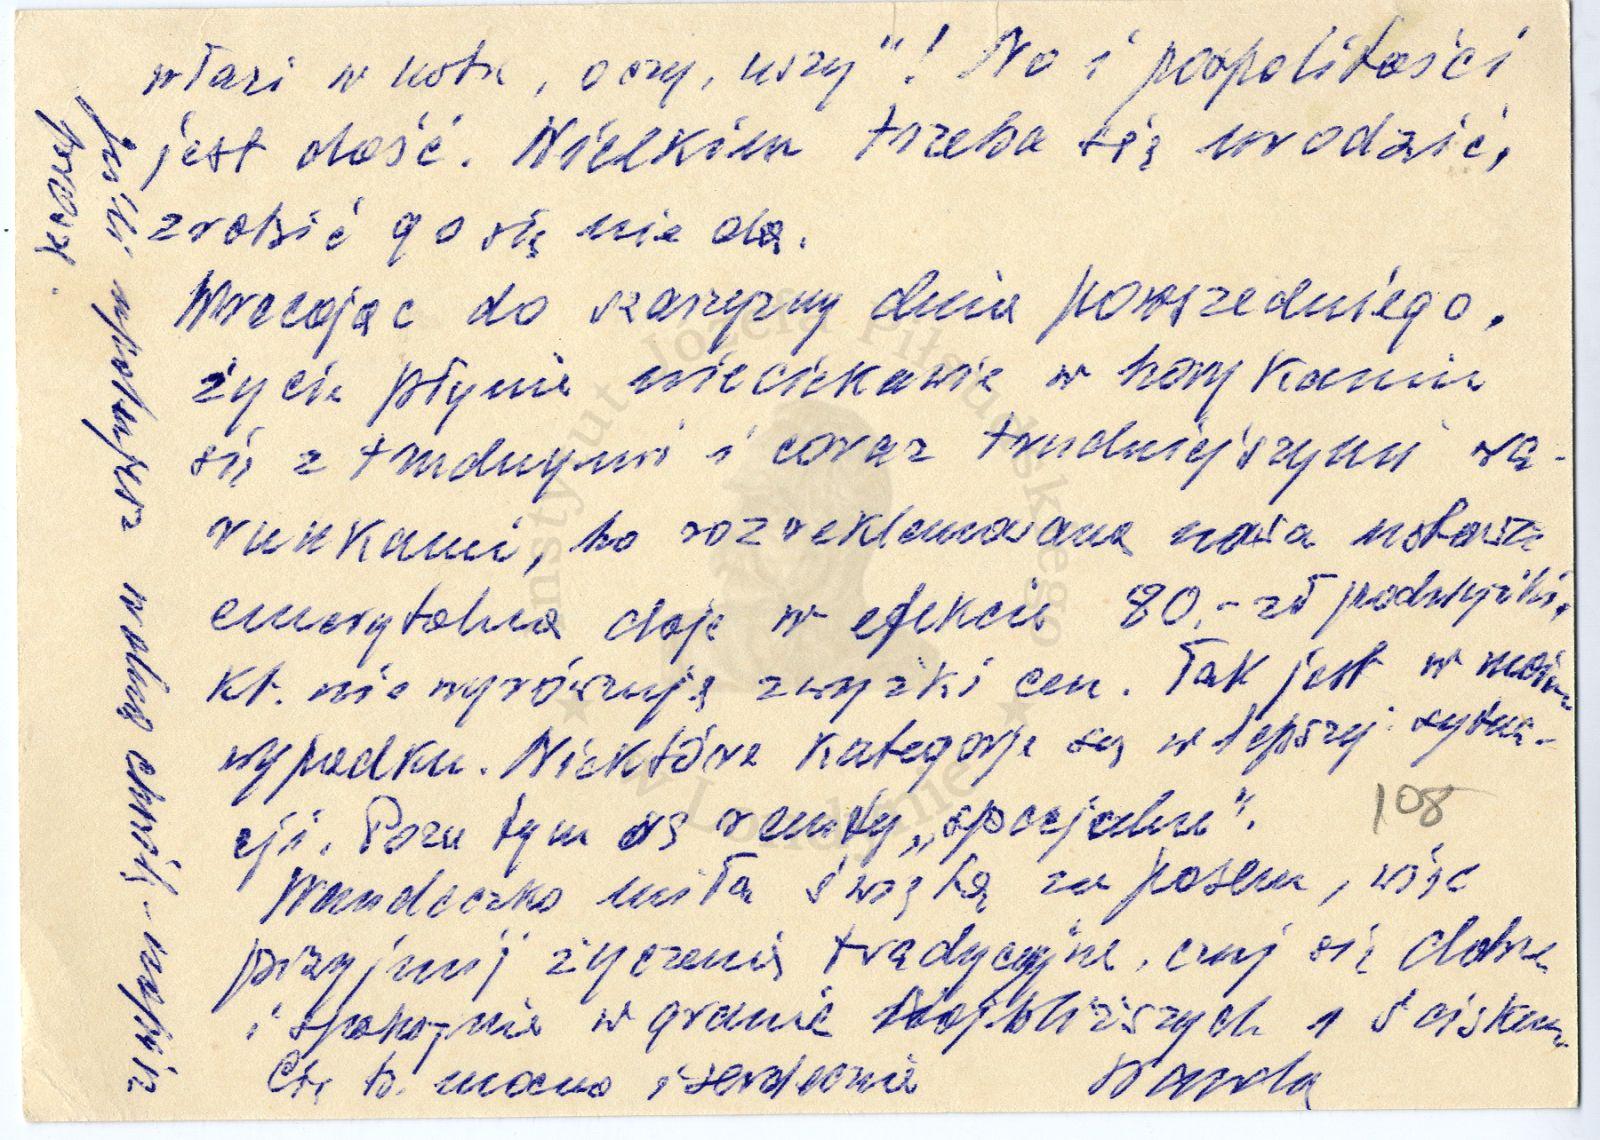 włazi w usta, oczy, uszy"! No i pospolitości
jest dość. Wielkim trzeba się urodzić,
zrobić go się nie da.
Wracając do szarzyzny dnia powszedniego,
życie płynie nieciekawie w borykaniu
się z trudnymi i coraz trudniejszymi wa-
runkami, bo rozreklamowana nowa ustawa
emerytalna daje w efekcie 80.- zł podwyżki,
kt. nie wyrównują zwyżki cen. Tak jest w moim
wypadku. Niektóre kategorje są w lepszej sytua-
cji. Poza tym są renty „specjalne".
Wandeczko miła święta za pasem, więc
przyjmij życzenia tradycyjne, czuj się dobrze
i spokojnie w gronie najbliższych i ściskam
Cię b. mocno i serdecznie Wanda
Jeśli wyłuskasz wolną chwilę - napisz
proszę.
108
Instytut Józefa Piłsudskiego
w Londynie